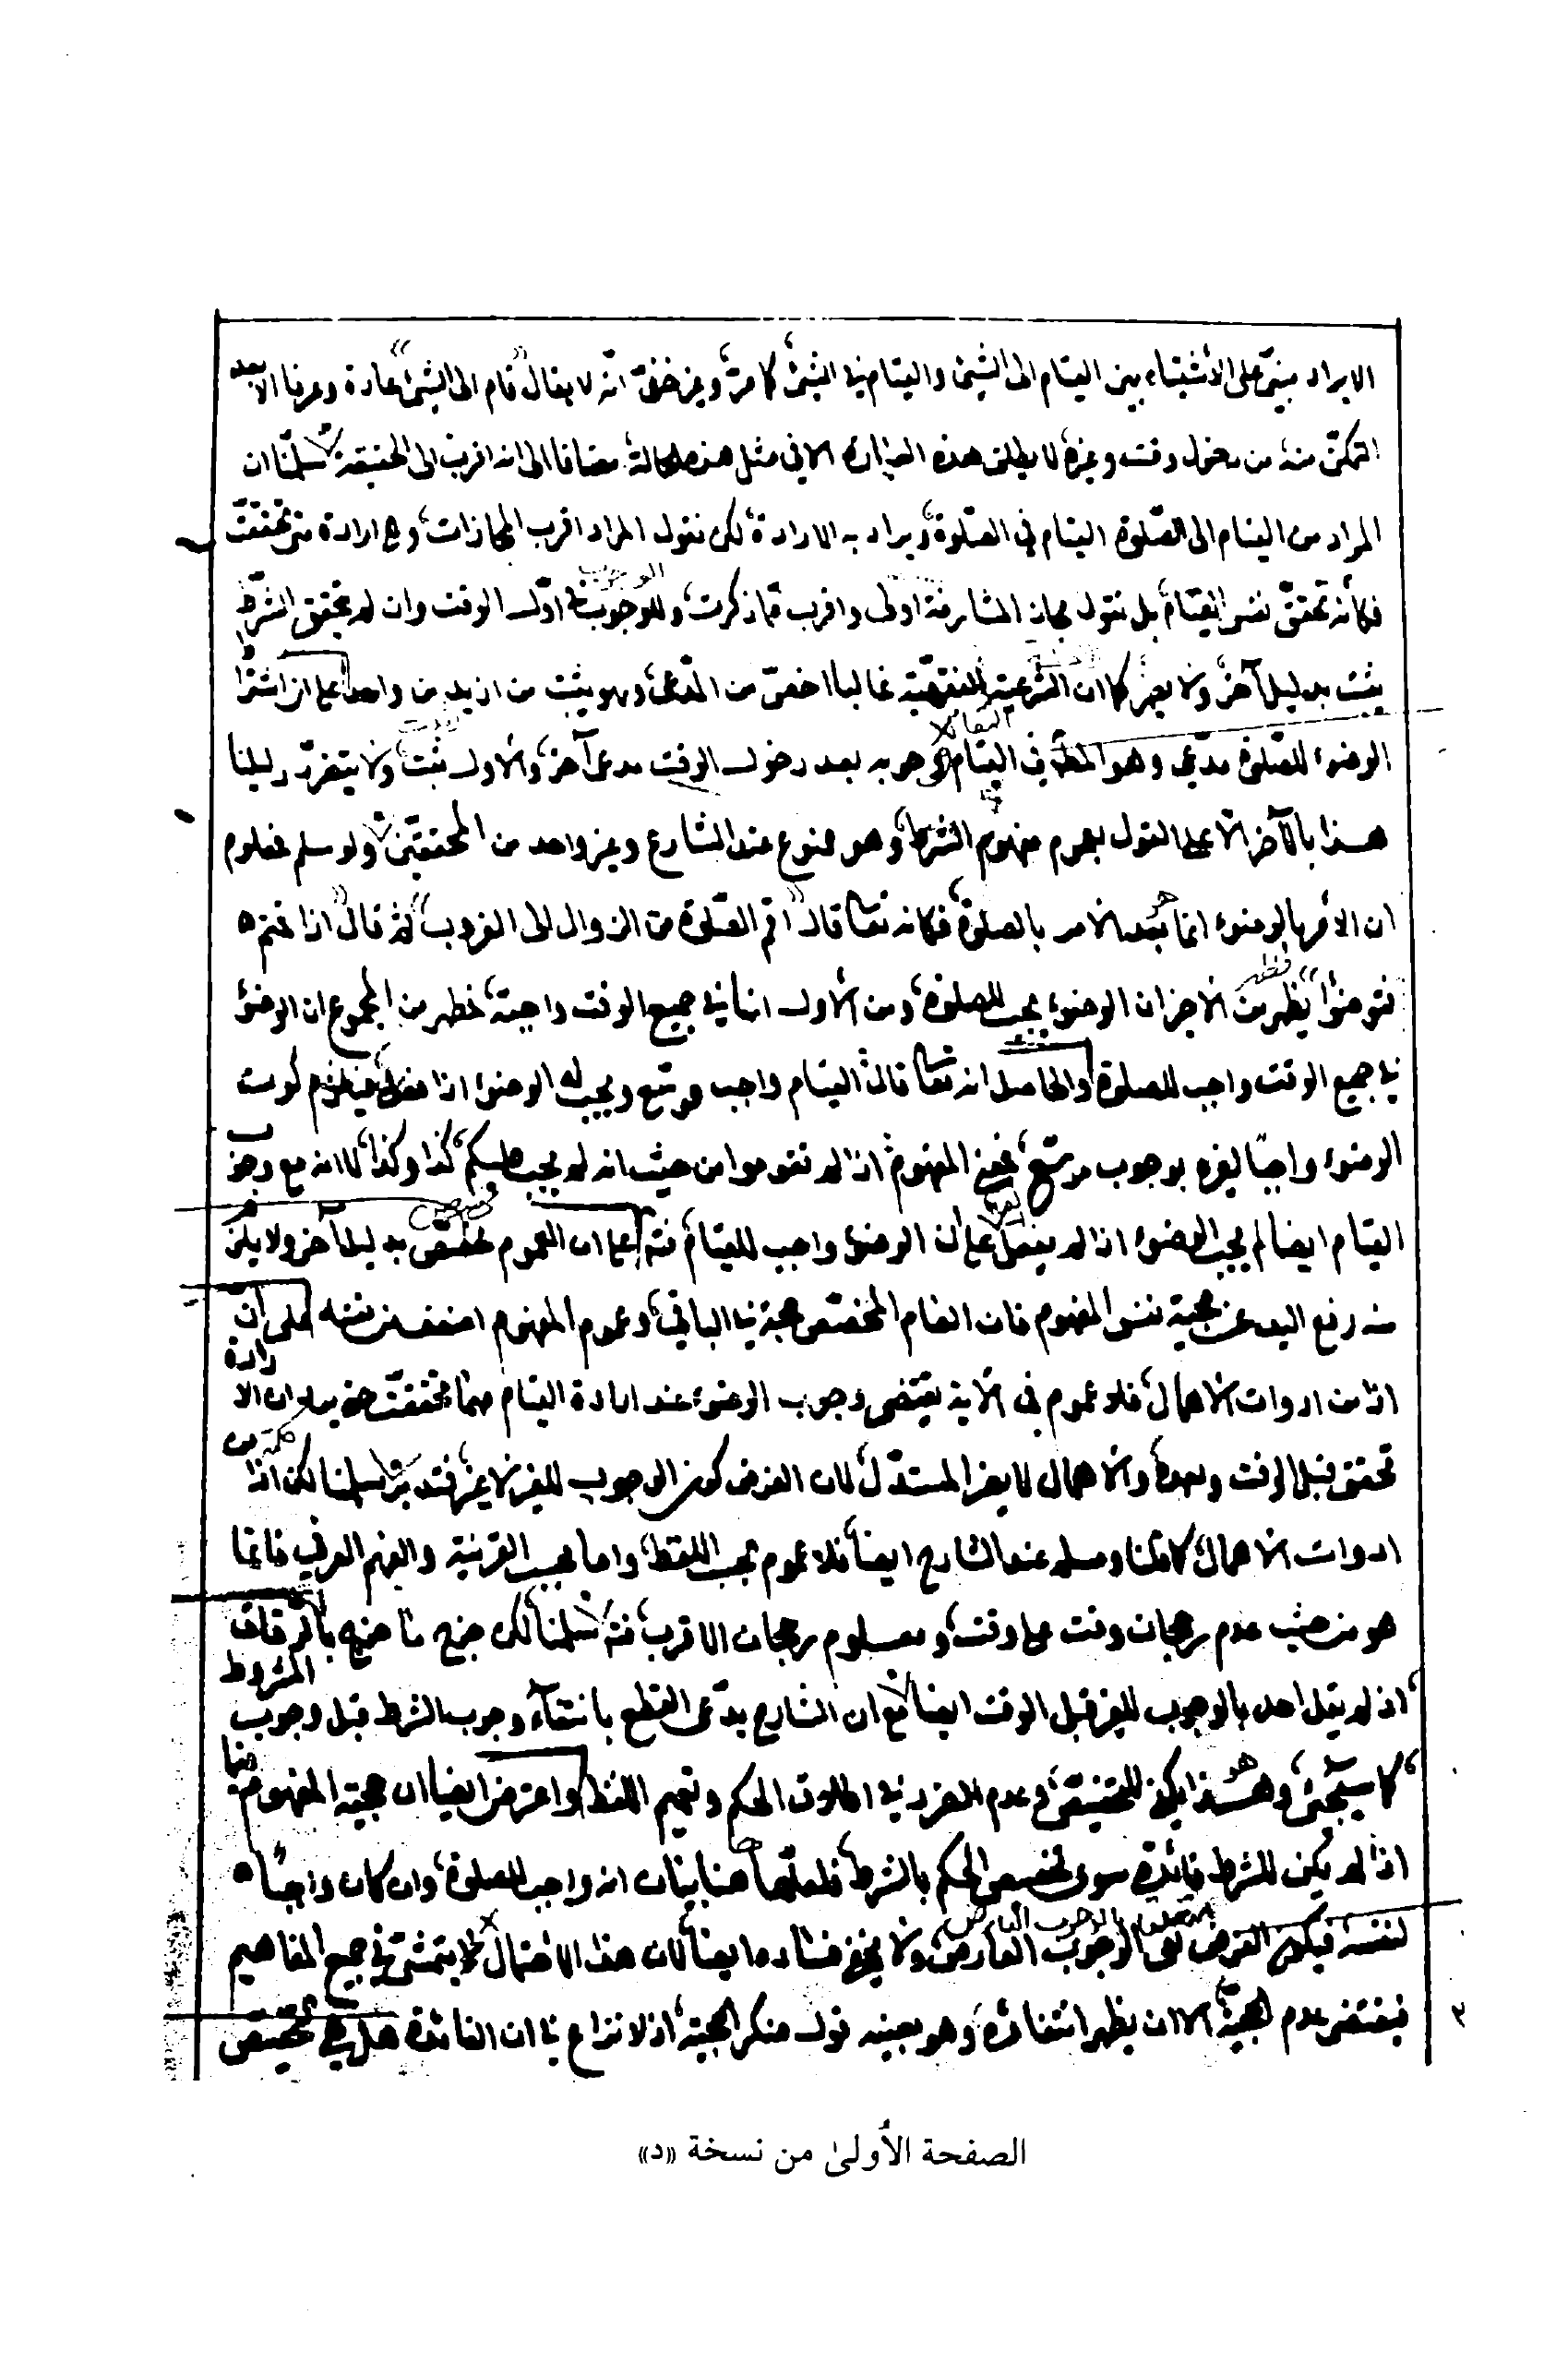 الايراد مبنيّ على الأشتباه بين القيام الى الشيئ والقيام في الشيئ كما مرّ وغير خفيّ انّه لا يقال قام الى الشيئ عادة وعرفا الا بعد
التمكّن منه من دخول وقت وغيره لا يطلق هذه العبارة الا في مثل هذه الحالة مضافا الى انه اقرب الى الحقيقة سلّمنا ان
المراد من القيام الى الصّلوة القيام في الصّلوة ويراد به الارادة لكن نقول المراد اقرب المجازات وهو ارادة متى تحققت
فكأنه تحقّق نفس القيام بل نقول مجاز المشارفة اولى واقرب ممّا ذكرت وللوجوب في اوّل الوقت وان لم يتحقق الشّرط
يثبت بدليل آخر ولا يضرّ كما ان الشرعية الفقهيّة غالبا اخصّ من المدّعى وهو يثبت من ازيد من واحد على ان اشتراط
الوضوء للصّلوة مدّعى وهو المط في القيام ووجوبه بعد دخول الوقت مدعى آخر والأول ثبت ولا يتفرّد دليلنا
هذا بالآخر الّا على القول بعموم مفهوم الشرط وهو ممنوع عند الشارع وغير واحد من المحققين ولو سلم فمعلوم
ان الأمر بالوضوء انما هو بعد الأمر بالصلوة فكانه تعالى قال اقم الصّلوة من الزوال الى الغروب ثم قال اذا قمتم
فتوضؤا فظهر من الأخير ان الوضوء يجب للصلوة ومن الأول انها في جميع الوقت واجبة فظهر من المجموع ان الوضوء
في جميع الوقت واجب للصلوة والحاصل انه تعالى قال القيام واجب موسّع ويجب له الوضوء اذا فعل فيلزم كون
الوضوء واجبًا لغيره بوجوب موسّع فمعنى المفهوم اذا لم تقوموا من حيث انه لم يجب عليكم كذا وكذا لا انه مع وجوب
القيام ايضا لم يجب الوضوء اذا لم يفعل على ان الوضوء واجب للقيام فتم على ان العموم مخصّص بدليل آخر ولا يلزم
منه رفع اليد عن حجية نفس المفهوم فان العام المخصّص حجة في الباقي وعموم المفهوم اضعف من نفسه على انّ
اذا من ادوات الأهمال فلا عموم في الآية يقتضي وجوب الوضوء عند ارادة القيام مهما تحققت حتى يراد ان الارادة
تحقق قبل الوقت وبعده والأهمال لا يضر المستدلّ لان الغرض كون الوجوب للغير لا غير فتدبر سلمنا لكن اذا كلمة من
ادوات الأهمال كما قلنا ومسلم عند الشارح ايضا فلا عموم بحسب اللفظ واما بحسب القرينة والفهم العرفي فانما
هو من حيث عدم رجحان وقت على وقت ومعلوم رجحان الاقرب فتم سلمنا لكن خرج ما خرج بالوفاق
اذ لم يقل احد بالوجوب للغير قبل الوقت ايضا مع ان الشارح يدّعى القطع بانتفاء وجوب الشرط قبل وجوب المشروط
كما سيجئ وهذا يكفي للتخصيص وعدم الضرر في اطلاق الحكم وتعميم اللفظ واعترض ايضا ان حجية المفهوم فيما
اذا لم يكن للشرط فائدة سوى تخصيص الحكم بالشرط فلعلّها هنا بيان انه واجب للصلوة وان كان واجبًا
لنفسه فيكون الغرض تعلق الوجوب العارض ولا يخفى فساده ايضا لان هذا الاحتمال يتمشى في جميع المفاهيم
فيقتضى عدم الحجية الا ان يظهر انتفائه وهو بعينه قول منكر الحجية اذ لا نزاع في ان الفائدة هل هي تخصيص
الصفحة الأولىٰ من نسخة «د»